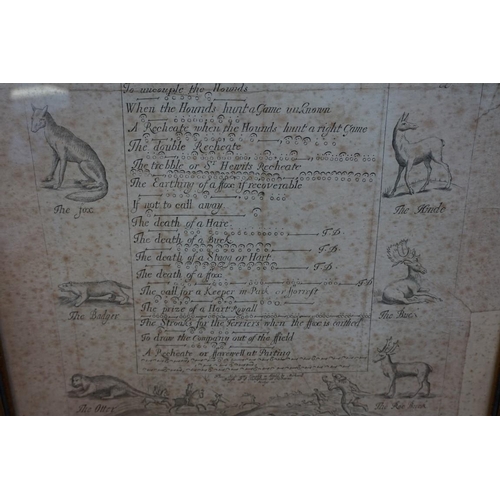 To uncouple the Hounds
When the Hounds hunt a Game unknown
A Recheate when the Hounds hunt a right Game
The double Recheate
The treble or Sr Hewits Recheate
The Earthing of a ffox if recoverable
The fox
The Hinde
If not to call away
The death of a Hare
The death of a Buck T D
The death of a Stagg or Hart T D
The death of a ffox T D
The call for a Keeper in Park or fforrest T D
The Badger
The Buck
The prize of a Hart Royall
The Stroake for the Terriers when the ffox is earthed
To draw the Company out of the ffield
A Recheate or farewell at Parting
The Otter
The